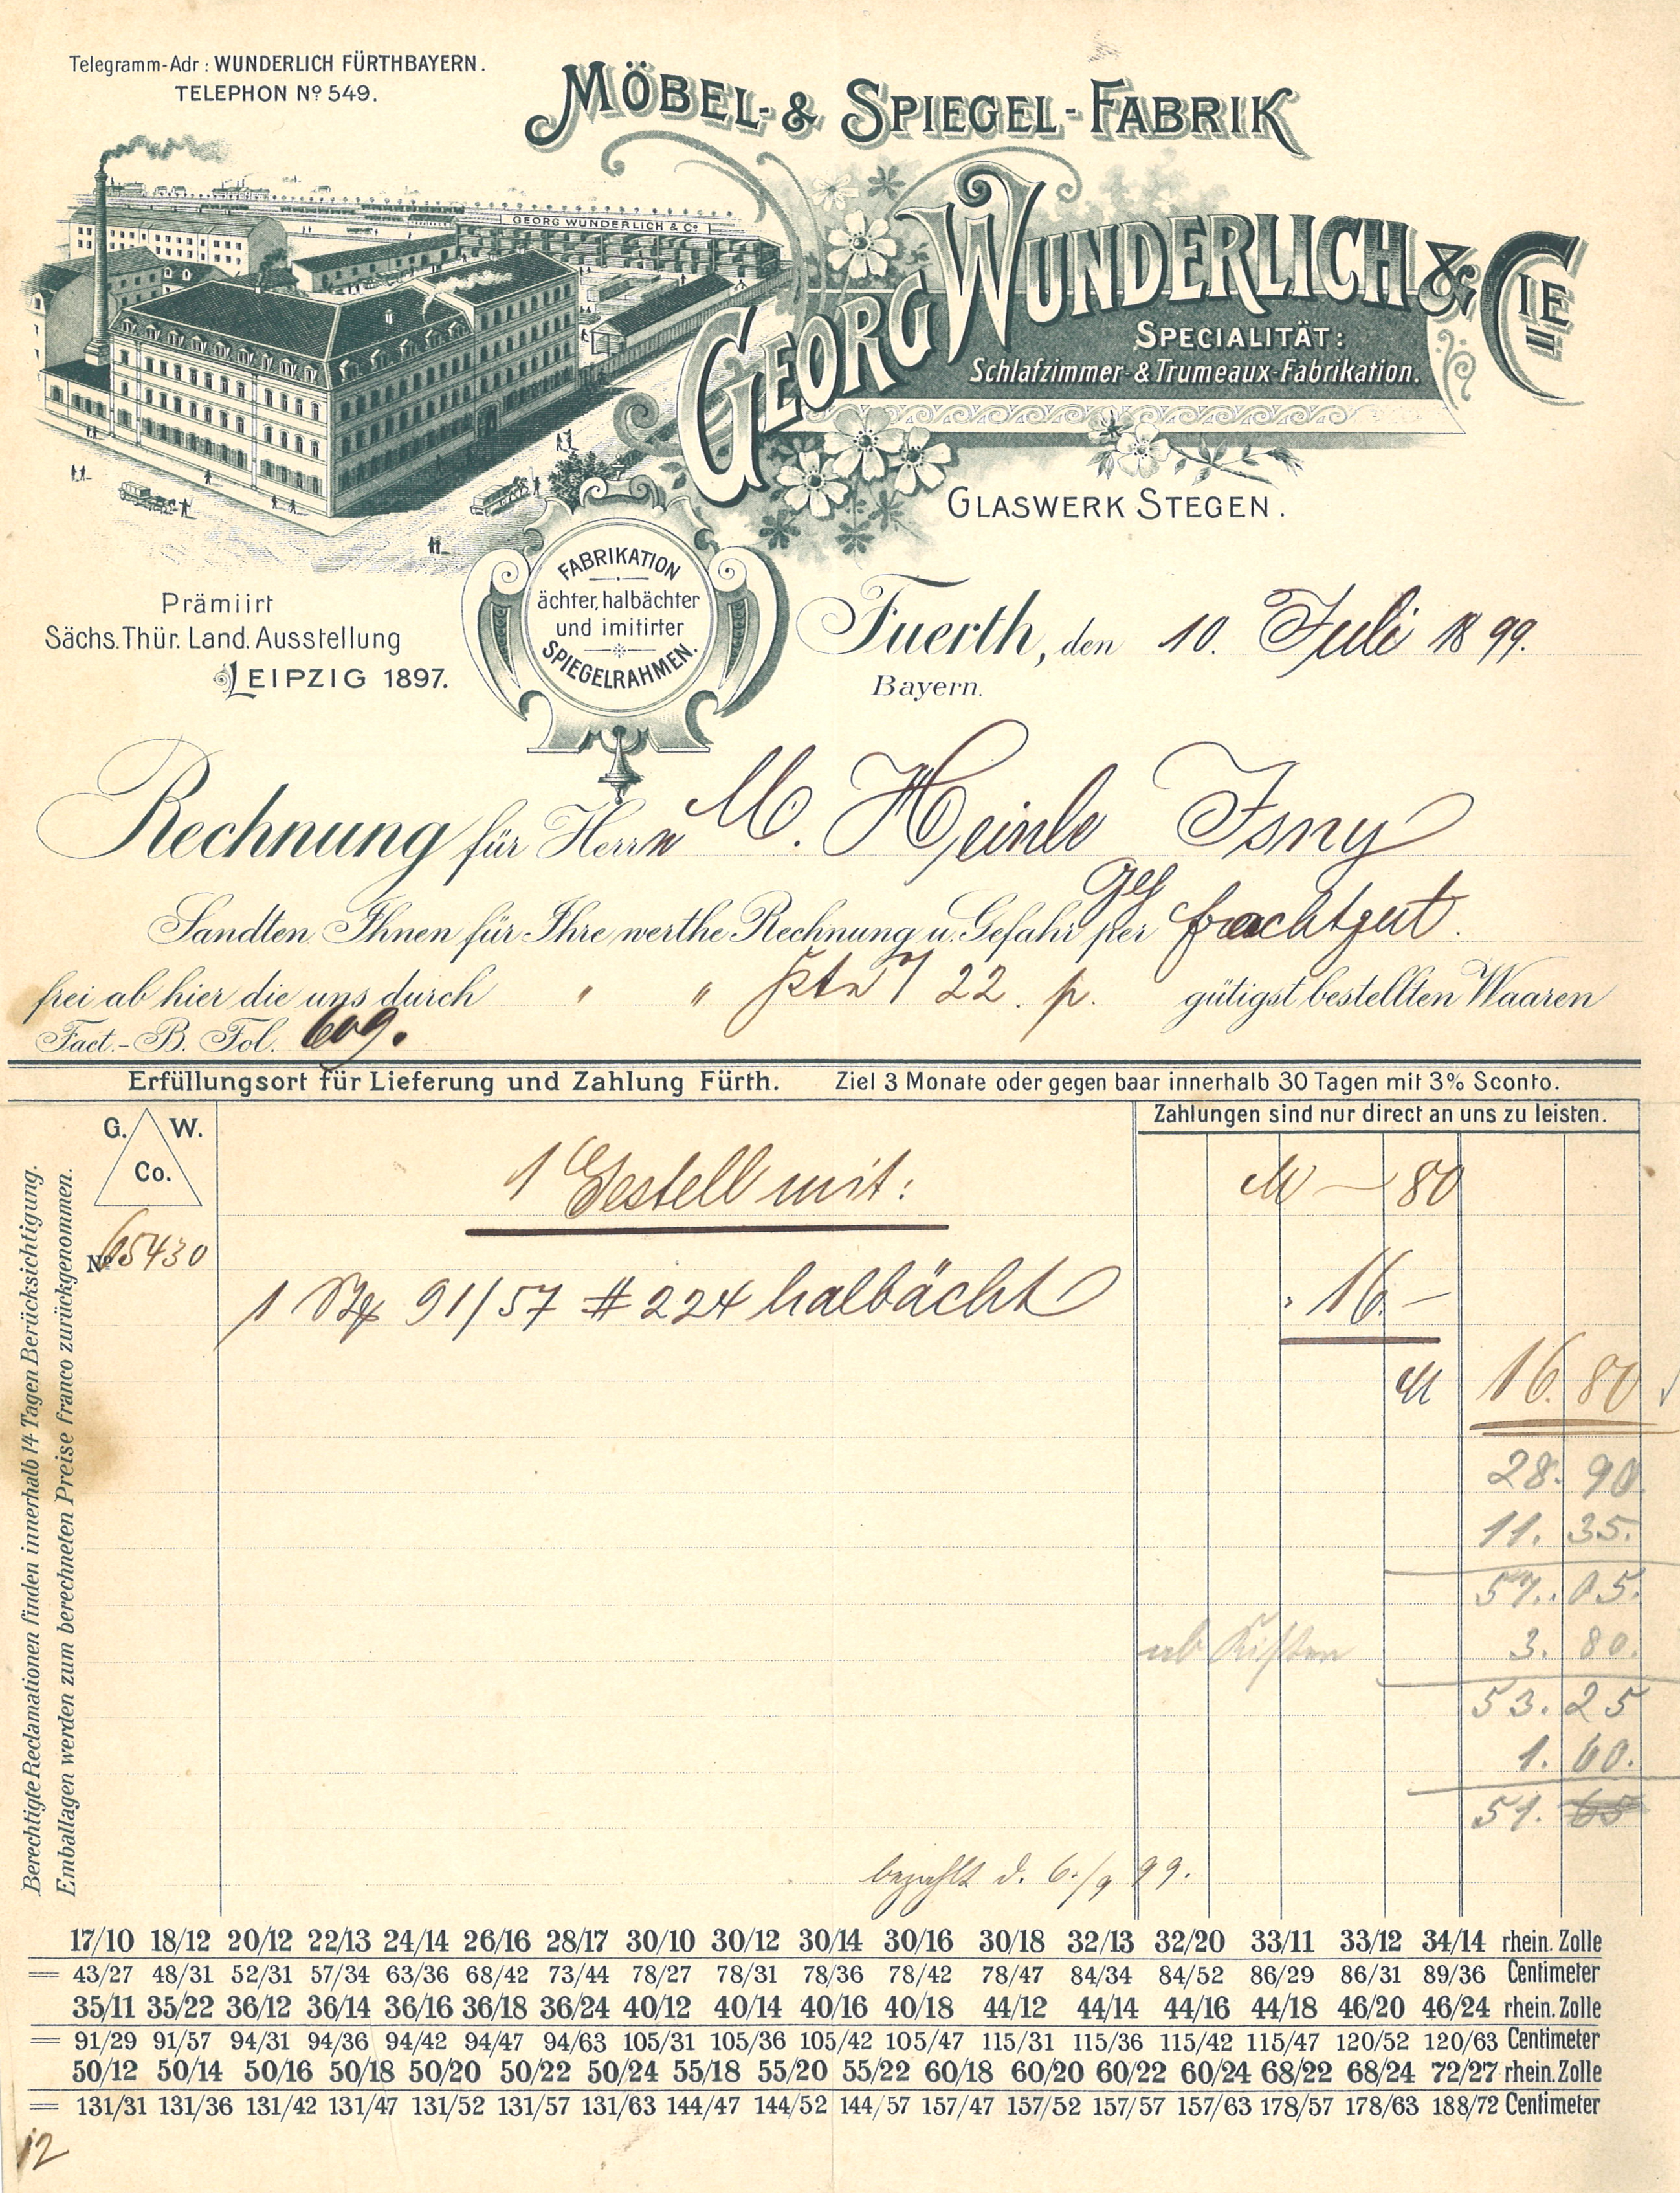 Telegramm-Adr: WUNDERLICH FÜRTHBAYERN.
TELEPHON Nº 549.
MÖBEL- & SPIEGEL-FABRIK
GEORG WUNDERLICH & Cº
GEORG WUNDERLICH & CIE
SPECIALITÄT:
Schlafzimmer- & Trumeaux-Fabrikation.
GLASWERK STEGEN.
FABRIKATION
ächter, halbächter
und imitirter
SPIEGELRAHMEN.
Prämiirt
Sächs. Thür. Land. Ausstellung
LEIPZIG 1897.
Fuerth, den 10. Juli 1899.
Bayern.
Rechnung für Herrn M. Heinle Isny
Sandten Ihnen für Ihre werthe Rechnung u. Gefahr per Frachtgut.
frei ab hier die uns durch " " 22. p. gütigst bestellten Waaren
Fact.-B. Fol. 609.
Erfüllungsort für Lieferung und Zahlung Fürth. Ziel 3 Monate oder gegen baar innerhalb 30 Tagen mit 3% Sconto.
Zahlungen sind nur direct an uns zu leisten.
G. W.
Co.
1 Gestell mit: M — 80
Nº 65430
1 91/57 # 224 halbächt " 16. —
M 16. 80
28. 90.
11. 35.
57. 05.
ab Kisten 3. 80.
53. 25
1. 60.
51. 65
bezahlt d. 6./9 99.
Berechtigte Reclamationen finden innerhalb 14 Tagen Berücksichtigung.
Emballagen werden zum berechneten Preise franco zurückgenommen.
17/10 18/12 20/12 22/13 24/14 26/16 28/17 30/10 30/12 30/14 30/16 30/18 32/13 32/20 33/11 33/12 34/14 rhein. Zolle
= 43/27 48/31 52/31 57/34 63/36 68/42 73/44 78/27 78/31 78/36 78/42 78/47 84/34 84/52 86/29 86/31 89/36 Centimeter
35/11 35/22 36/12 36/14 36/16 36/18 36/24 40/12 40/14 40/16 40/18 44/12 44/14 44/16 44/18 46/20 46/24 rhein. Zolle
= 91/29 91/57 94/31 94/36 94/42 94/47 94/63 105/31 105/36 105/42 105/47 115/31 115/36 115/42 115/47 120/52 120/63 Centimeter
50/12 50/14 50/16 50/18 50/20 50/22 50/24 55/18 55/20 55/22 60/18 60/20 60/22 60/24 68/22 68/24 72/27 rhein. Zolle
= 131/31 131/36 131/42 131/47 131/52 131/57 131/63 144/47 144/52 144/57 157/47 157/52 157/57 157/63 178/57 178/63 188/72 Centimeter
12